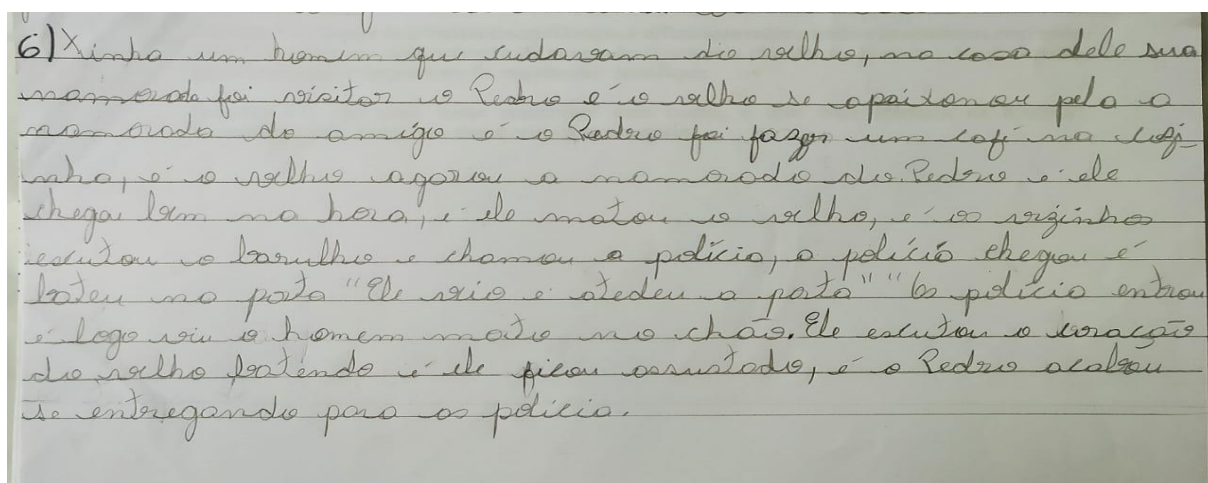 6) Tinha um homem que cudavam do velho, na casa dele sua
namorada foi visitar o Pedro é o velho se apaixonou pela a
namorada do amigo é o Pedro foi fazer um café na cozi-
nha, é o velho agarou a namorada do Pedro e ele
chegou bem na hora, e ele matou o velho, é os vizinhos
escutou o barulho e chamou a polícia, a polícia chegou é
bateu na porta "Ele veio e atedeu a porta" "Os polícia entrou
e logo viu o homem morto no chão. Ele escutou o coração
do velho batendo e ele ficou assustado, é o Pedro acabou
se entregando para os polícia.